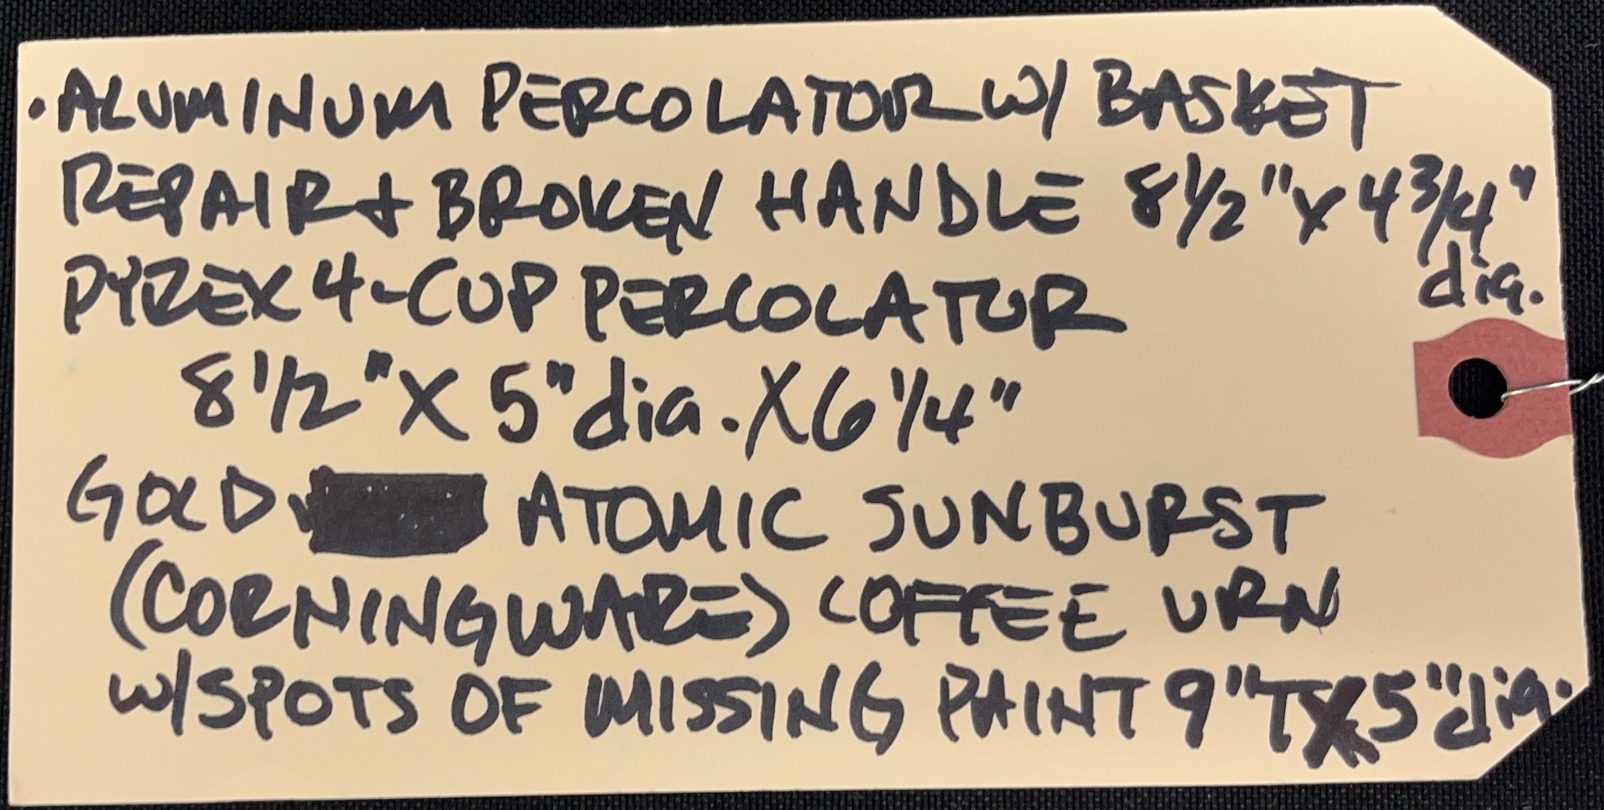 • ALUMINUM PERCOLATOR W/ BASKET
REPAIR + BROKEN HANDLE 8 1/2" X 4 3/4"
dia.
PYREX 4-CUP PERCOLATOR
8 1/2" X 5" dia. X 6 1/4"
GOLD ATOMIC SUNBURST
(CORNINGWARE) COFFEE URN
W/SPOTS OF MISSING PAINT 9"T X 5" dia.